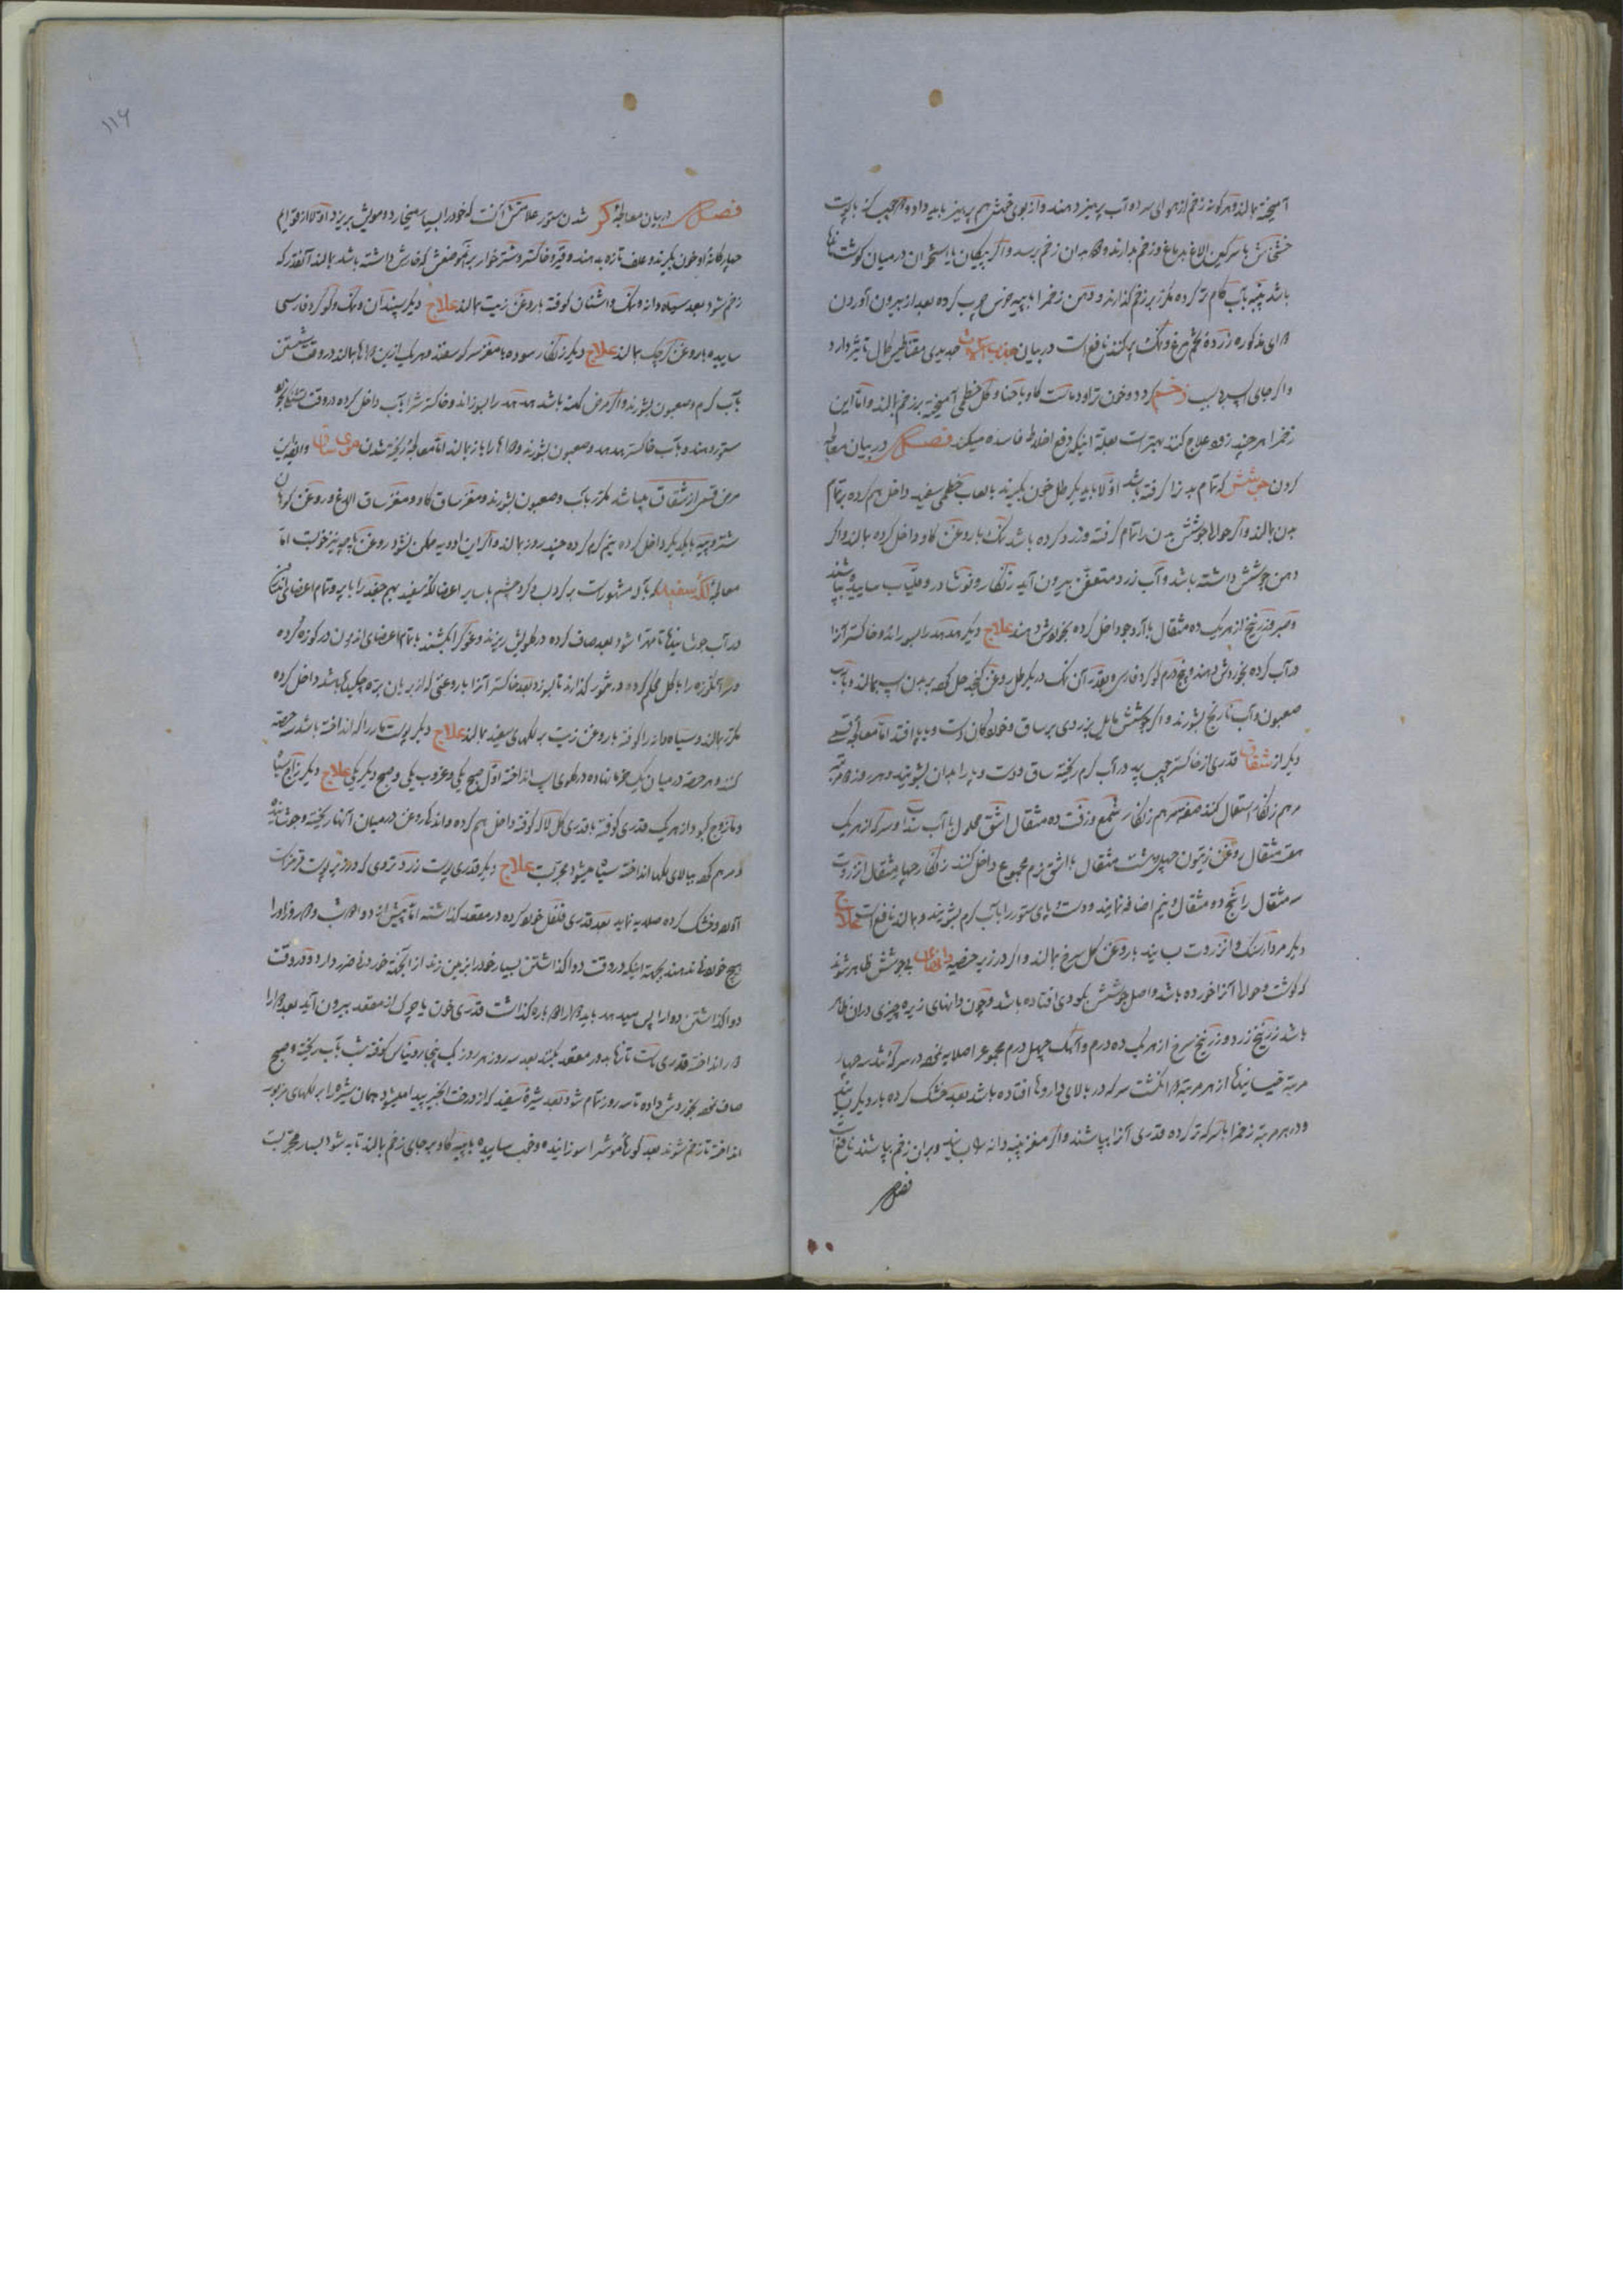 آمیخته بمالند و هر کونه زخم از هوای سرد و آب پرهیز دهند و از بوی خوش هم پرهیز باید داد و
خشخاش با سرکین الاغ بدماغ و زخم بدارند و بدان زخم برسد و اکر پیکان یا استخوان در میان کوشت
باشد پنبه بآب کرم تر کرده مکرر بر زخم گذارند و دهن زخم را با پیه خوس چرب کرده بعد از بیرون آوردن
مذکوره زرده تخم مرغ و نمک پر کنند نافع است در بیان حدیدی مقناطیس کمال تأثیر دارد
واکر جای اسپ زخم کردد و خون تراود ماست کاو با حنا و کل خطمی آمیخته بر زخم بمالند و اما این
زخم را هر چند زود علاج کنند بهتر است بعلة اینکه دفع اخلاط فاسده میکند فصل در بیان معالجه
کردن جوشش که تمام بدن را کرفته باشد اولا باید یک رطل خون بگیرند بالعاب خطمی سفید داخل هم کرده بر تمام
بدن بمالند و اکر حوالی جوشش بدن را تمام کرفته و زرد کرده باشد نمک با روغن کاو داخل کرده بمالند و اکر
دهن جوشش داشته باشد و آب زرد متعفن بیرون آید زنکار و نوشادر و قلیاب ساییده بپاشند
وصبر و زرنیخ از هر یک ده مثقال با آرد جو داخل کرده بخوردش دهند علاج دیکر هدهد را بسوزانند و خاکستر آنرا
در آب کرده بخوردش دهند و پنج درم کوکرد فارسی و بقدر آن نمک در یک رطل روغن کنجد حل کرده بر بدن اسپ بمالند و
صعبون و آب نارنج بشورند و اکر جوشش مایل بزردی بر ساق و خورده کان دست و پا افتد اما معالجه قسمی
دیکر از شقاق قدری از خاکستر چوب بید در آب کرم ریخته ساق و دست و پا را بدان بشویند و هر روز دو مرتبه
مرهم زنکار استعمال کنند صفة مرهم زنکار شمع و زفت ده مثقال اشق محلول بآب سداب و سرکه از هر یک
هفت مثقال روغن زیتون چهل و هشت مثقال با اشق نرم مجموع داخل کنند زنکار چهار مثقال انزروت
سه مثقال راتنج دو مثقال و نیم اضافه نمایند و دست و پای ستور را بآب کرم بشویند و بمالند نافع است علاج
دیکر مردارسنک و انزروت بسایند با روغن کل سرخ بمالند و اکر در زیر خصیه جوشش ظاهر شوند
که کوشت و حوالی آنرا خورده باشد و اصل جوشش بکودی افتاده باشد و چون دانهای زیره چیزی در آن ظاهر
باشد زرنیخ زرد و زرنیخ سرخ از هر یک ده درم و آهک چهل درم مجموع را صلایه نموده در سرکه تند سه چهار
مرتبه خیسانیده از هر مرتبه انکشت سرکه در بالای داروها افتاده باشد بعد خشک کرده بار دیکر بسایند
و در هر مرتبه زخم را با سرکه تر کرده قدری آنرا بپاشند و اکر مغز پنبه دانه بسایند و بر آن زخم بپاشند نافع است
فصل
۱۱۶
فصل در بیان معالجه کر شدن ستور علامتش آنست که خود را بسیار میخارد و مویش بریزد اولا از قوایم
چهارکانه او خون بگیرند و علف تازه بدهند و قیر و خاکستر و شتر خوار بر موضعش که خارش داشته باشد بمالند آنقدر که
زخم شود بعد سیاه دانه و نمک و اشنان کوفته با روغن زیت بمالند علاج دیکر سپندان و نمک و کوکرد فارسی
ساییده با روغن کرچک بمالند علاج دیکر زنکار سوده با مغز سر کوسفند و هر یک ازین بمالند در وقت شستن
بآب کرم و صعبون بشورند و اکر مرض کهنه باشد هدهد را بسوزانند و خاکسترش را بآب داخل کرده در وقت
ستور دهند و بآب خاکستر هدهد و صعبون بشورند و را باز بمالند اما معالجه ریخته شدن موی ساق
مرض قسمی از شقاق میباشد مکرر بآب و صعبون بشورند و مغز ساق کاو و مغز ساق الاغ و روغن کوهان
شتر و پیه با یکدیکر داخل کرده نیم کرم کرده چند روز بمالند و اکر این ادویه ممکن نشود روغن پاچه نیز خوبست اما
معالجه لکه سفید که مشهور است بر کرد لب و کرد چشم یا سایر اعضا لکه سفید بهم جغد را با پر و تمام اعضای
در آب جوشانیده تا مهرا شود بعد صاف کرده در کلویش ریزند و غوک را بکشند با تمام اعضای اندرون در کوزه کرده
و سر آن کوزه را با کل محکم کرده در تنور گذارند تا بسوزد بعد خاکستر آنرا با روغنی که از بریان بره چکیده باشد داخل کرده
مکرر بمالند و سیاه دانه را کوفته با روغن زیت بر لکهای سفید بمالند علاج دیکر پوست مار را که انداخته باشد سه حصه
کنند و هر حصه در میان یک خرما نهاده در کلوی اسپ انداخته اول صبح یکی و غروب یکی و صبح دیکر یکی علاج دیکر زاج سیاه
و مازوج کبود از هر یک قدری کوفته با قدری کل لاله کوفته داخل هم کرده و اندکی روغن در میان آنها ریخته و جوشانیده
که مرهم شود ببالای لکها انداخته سیاه میشود مجرب است علاج دیکر قدری پوست زرد تردی که در زیر پوست قرمز است
آورده و خشک کرده صلایه نماید بعد قدری فلفل خورد کرده در مقعد کذاشته اما پیش از دوا
هیچ خوراک ندهند بجهة اینکه در وقت دوا کذاشتن بسیار خود را بر زمین زند از آنجهة خوردنی ضرر دارد و در وقت
دوا کذاشتن دوا را پس میدهد باید دوباره کذاشت قدری خون یا چرک از مقعد بیرون آید بعد
انداخته قدری ماست تازه بدور مقعد بکنند بعد سه روز هر روز یک پنجا روناس کوفته شب بآب ریخته و صبح
صاف نموده بخوردش داده تا سه روز تمام شود بعد شیره سفید که از درخت انجیر پیدا میشود همان شیره را بر لکهای مزبور
انداخته تا زخم شوند بعد کورهٔ موش را سوزانیده و خوب ساییده با پیه کاو بر جای زخم بمالند تا به شود بسیار مجرب است